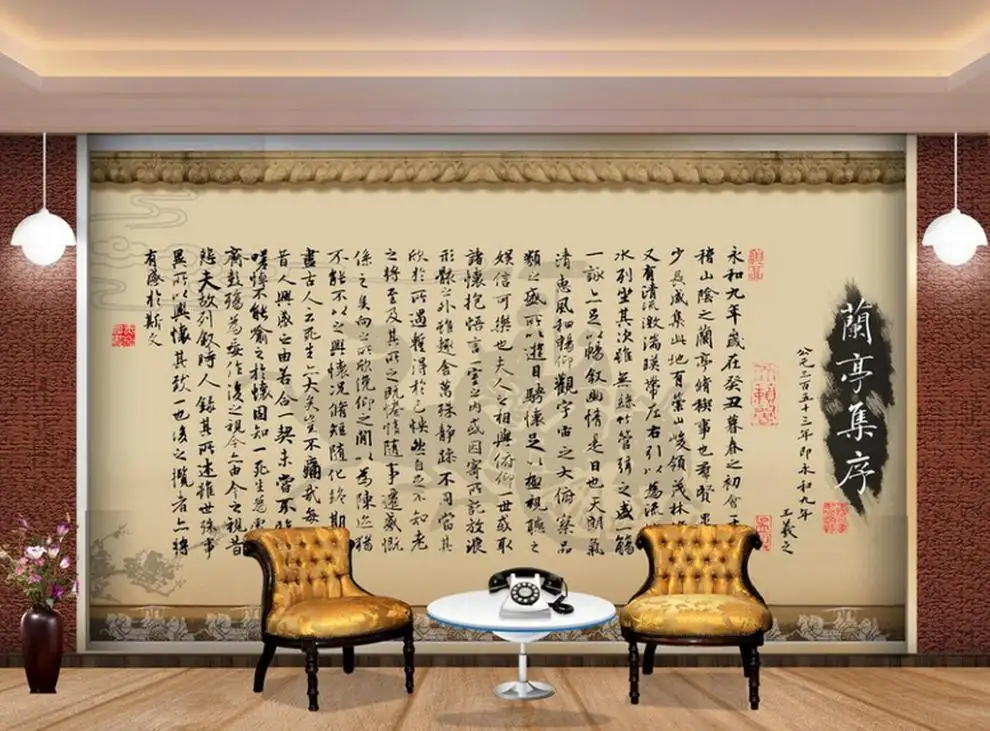 蘭亭集序
公元三百五十三年即永和九年
王羲之
永和九年歲在癸丑暮春之初會
稽山陰之蘭亭脩禊事也羣賢畢
少長咸集此地有崇山峻領茂林
又有清流激湍暎帶左右引以為流
水列坐其次雖無絲竹管絃之盛一觴
一詠亦足以暢敘幽情是日也天朗氣
清惠風和暢仰觀宇宙之大俯察品
類之盛所以遊目騁懷足以極視聽之
娛信可樂也夫人之相與俯仰一世或取
諸懷抱悟言一室之內或因寄所託放浪
形骸之外雖趣舍萬殊靜躁不同當其
欣於所遇暫得於己怏然自足不知老
之將至及其所之既惓情隨事遷感慨
係之矣向之所欣俛仰之間以為陳迹猶
不能不以之興懷況脩短隨化終期
盡古人云死生亦大矣豈不痛哉每
昔人興感之由若合一契未嘗不臨
嗟悼不能喻之於懷固知一死生為虛
齊彭殤為妄作後之視今亦由今之視昔
悲夫故列敘時人錄其所述雖世殊事
異所以興懷其致一也後之攬者亦將
有感於斯文